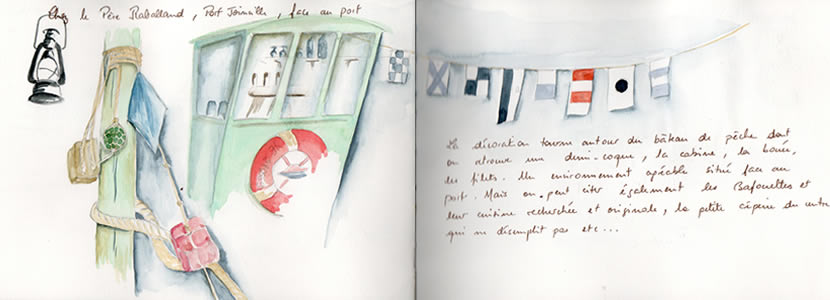 Chez le Père Raballand, Port Joinville, face au port
La décoration tourne autour du bâteau de pêche dont
on retrouve une demi-coque, la cabine, la bouée,
les filets. Un environnement agréable situé face au
port. Mais on peut citer également les Bafouettes et
leur cuisine recherchée et originale, la petite crêperie du centre
qui ne désemplit pas etc...